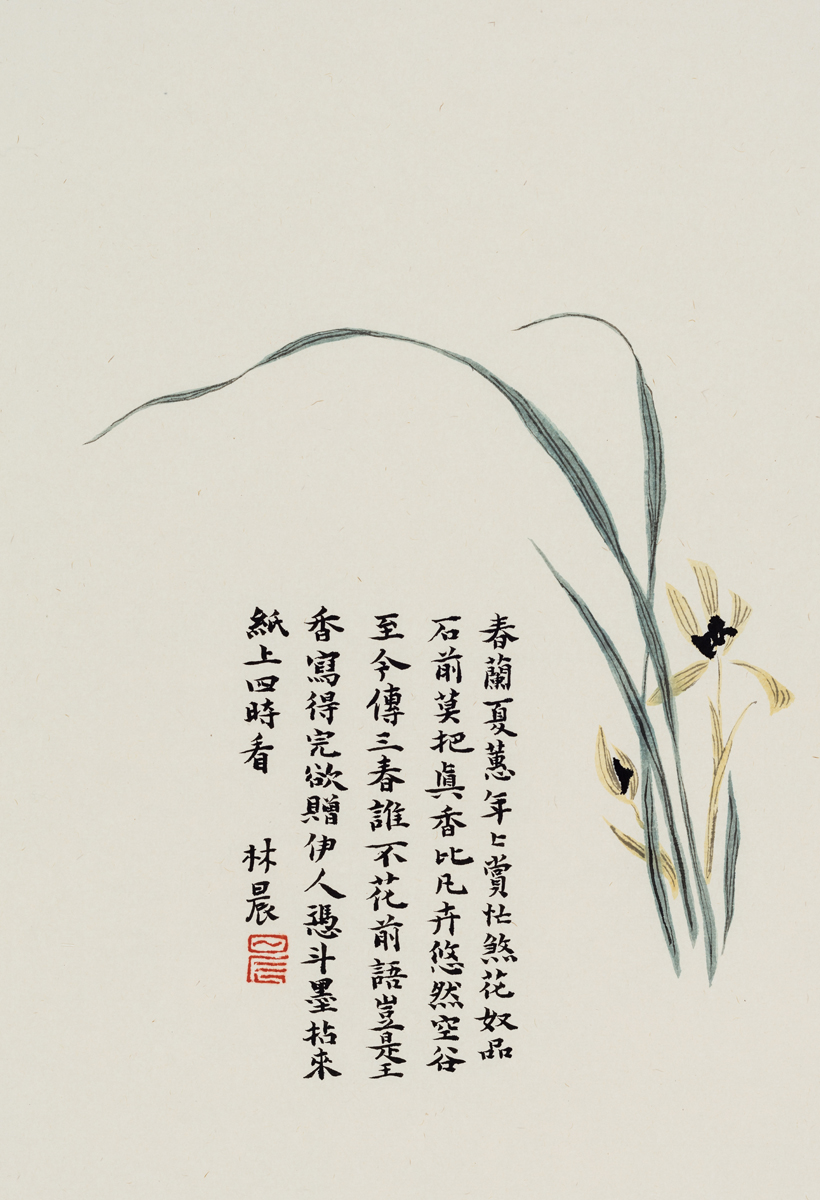 春蘭夏蕙年〻賞忙煞花奴品
石前莫把眞香比凡卉悠然空谷
至今傳三春誰不花前語豈是王
香寫得完欲贈伊人憑斗墨拈來
紙上四時看 林晨